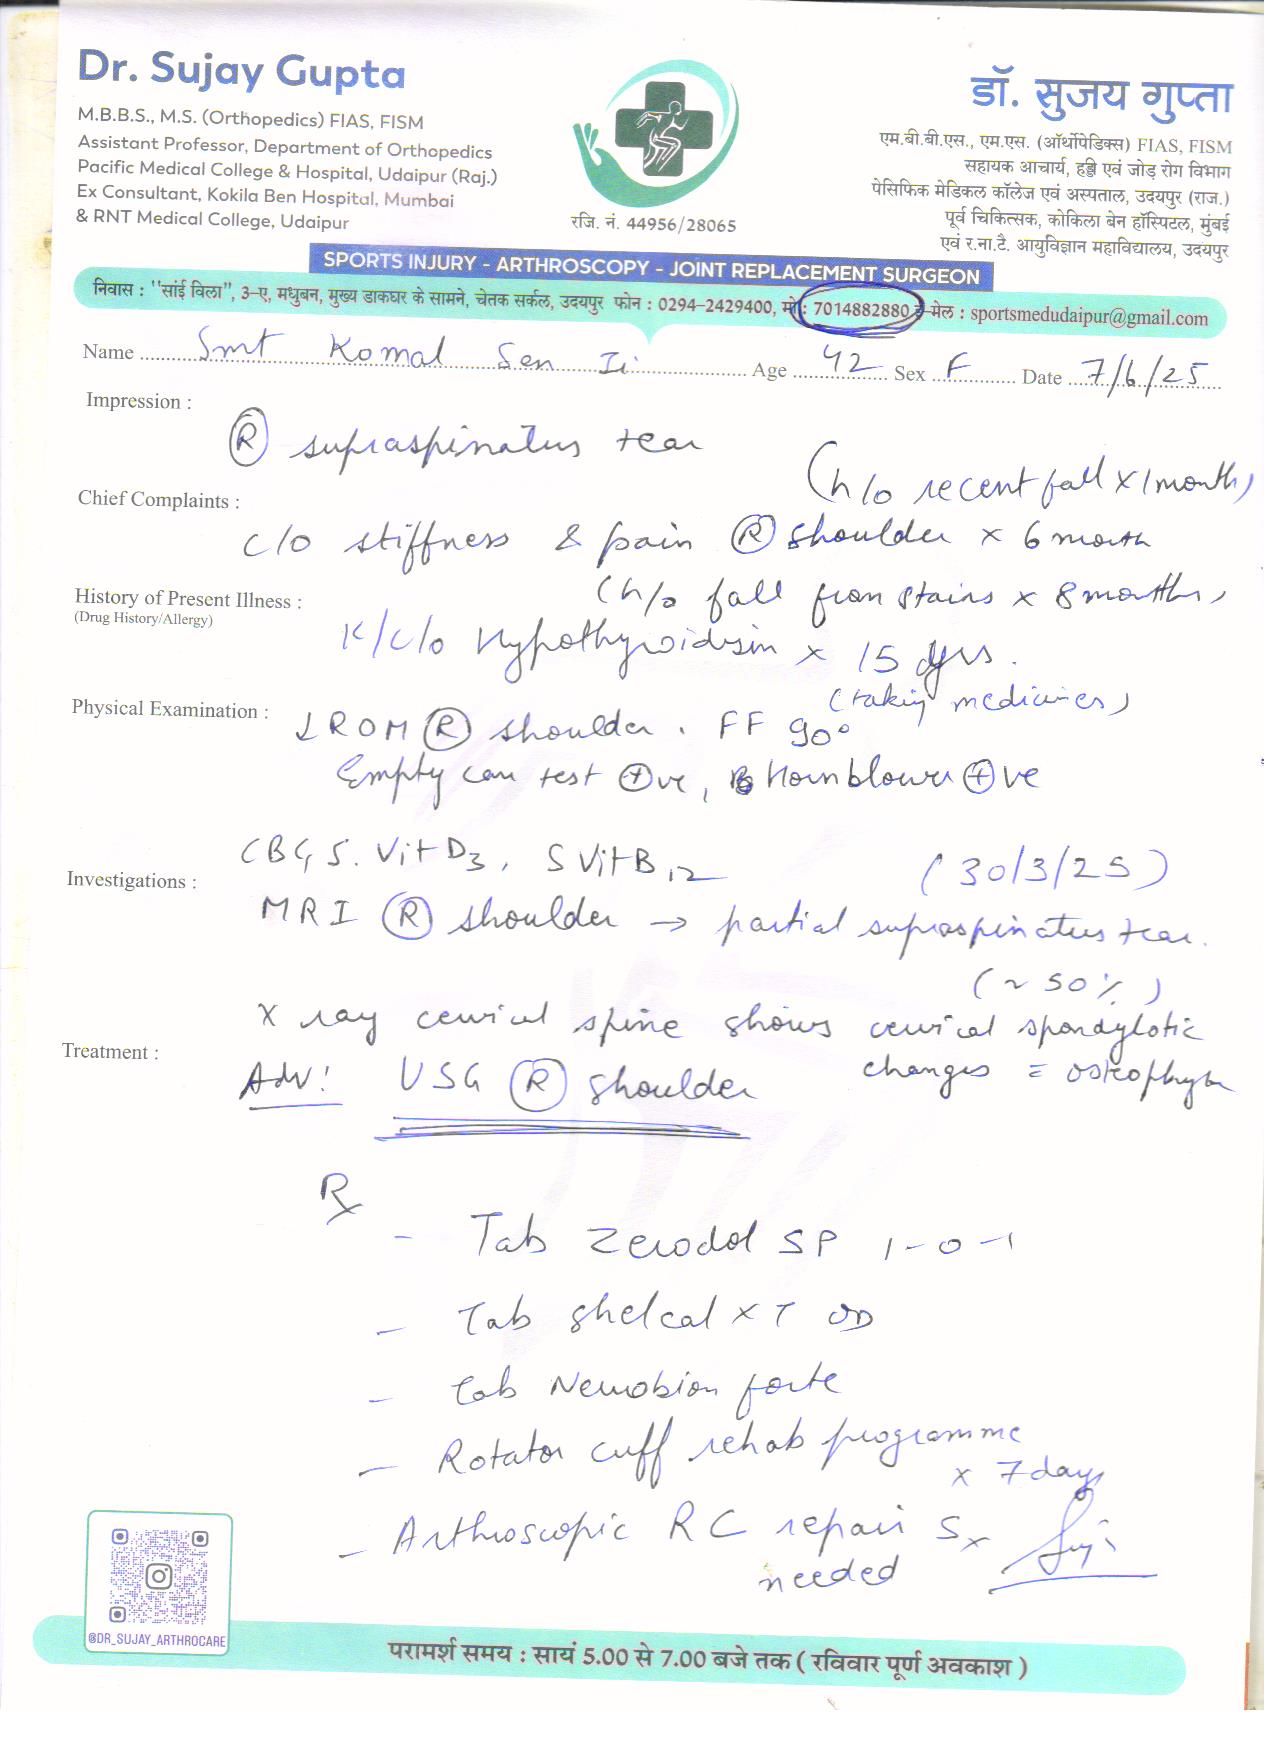 Dr. Sujay Gupta
M.B.B.S., M.S. (Orthopedics) FIAS, FISM
Assistant Professor, Department of Orthopedics
Pacific Medical College & Hospital, Udaipur (Raj.)
Ex Consultant, Kokila Ben Hospital, Mumbai
& RNT Medical College, Udaipur
रजि. नं. 44956/28065
डॉ. सुजय गुप्ता
एम.बी.बी.एस., एम.एस. (ऑर्थोपेडिक्स) FIAS, FISM
सहायक आचार्य, हड्डी एवं जोड़ रोग विभाग
पेसिफिक मेडिकल कॉलेज एवं अस्पताल, उदयपुर (राज.)
पूर्व चिकित्सक, कोकिला बेन हॉस्पिटल, मुंबई
एवं र.ना.टै. आयुविज्ञान महाविद्यालय, उदयपुर
SPORTS INJURY - ARTHROSCOPY - JOINT REPLACEMENT SURGEON
निवास : "सांई विला", 3-ए, मधुबन, मुख्य डाकघर के सामने, चेतक सर्कल, उदयपुर फोन : 0294-2429400, मो. : 7014882880 ई-मेल : sportsmedudaipur@gmail.com
Name Smt Komal Sen Ji Age 42 Sex F Date 7/6/25
Impression :
Ⓡ supraspinatus tear
(h/o recent fall x 1 month)
Chief Complaints :
c/o stiffness & pain Ⓡ shoulder x 6 month
(h/o fall from stairs x 8 months)
History of Present Illness :
(Drug History/Allergy)
K/c/o Hypothyroidism x 15 yrs.
(taking medicines)
Physical Examination :
↓ROM Ⓡ shoulder. FF 90°
Empty can test ⊕ve, Hornblower ⊕ve
CBC, S. Vit D3, S Vit B12 (30/3/25)
Investigations :
MRI Ⓡ shoulder → partial supraspinatus tear.
(~50%)
X ray cervical spine shows cervical spondylotic
changes = osteophytes
Treatment :
Adv: USG Ⓡ shoulder
Rx
- Tab Zerodol SP 1-0-1
- Tab Shelcal XT OD
- Tab Neurobion forte
- Rotator cuff rehab programme
x 7 days
- Arthroscopic RC repair Sx
needed
@DR_SUJAY_ARTHROCARE
परामर्श समय : सायं 5.00 से 7.00 बजे तक ( रविवार पूर्ण अवकाश )